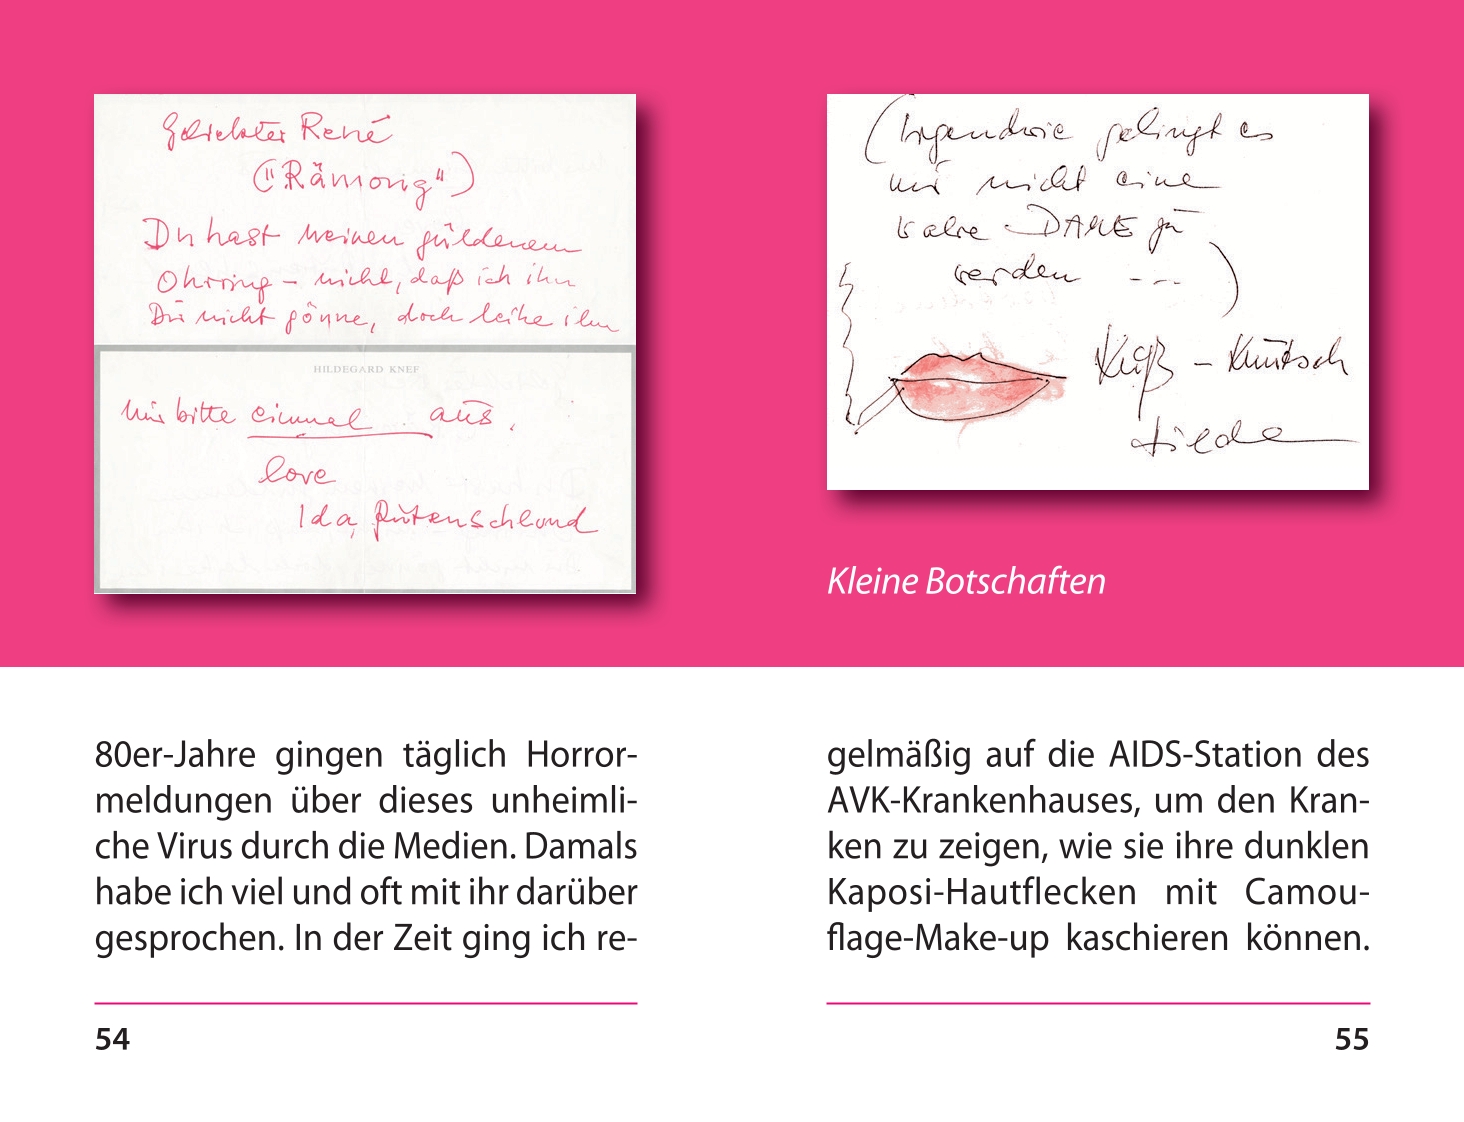 Geliebter René
("Rämong")
Du hast meinen güldenen
Ohrring – nicht, daß ich ihn
Dir nicht gönne, doch leihe ihn
HILDEGARD KNEF
mir bitte einmal aus.
love
Ida
(Irgendwie gelingt es
mir nicht eine
wahre DAME zu
werden ---)
Kuß – Knutsch
Kleine Botschaften
80er-Jahre gingen täglich Horror-
meldungen über dieses unheimli-
che Virus durch die Medien. Damals
habe ich viel und oft mit ihr darüber
gesprochen. In der Zeit ging ich re-
54
gelmäßig auf die AIDS-Station des
AVK-Krankenhauses, um den Kran-
ken zu zeigen, wie sie ihre dunklen
Kaposi-Hautflecken mit Camou-
flage-Make-up kaschieren können.
55